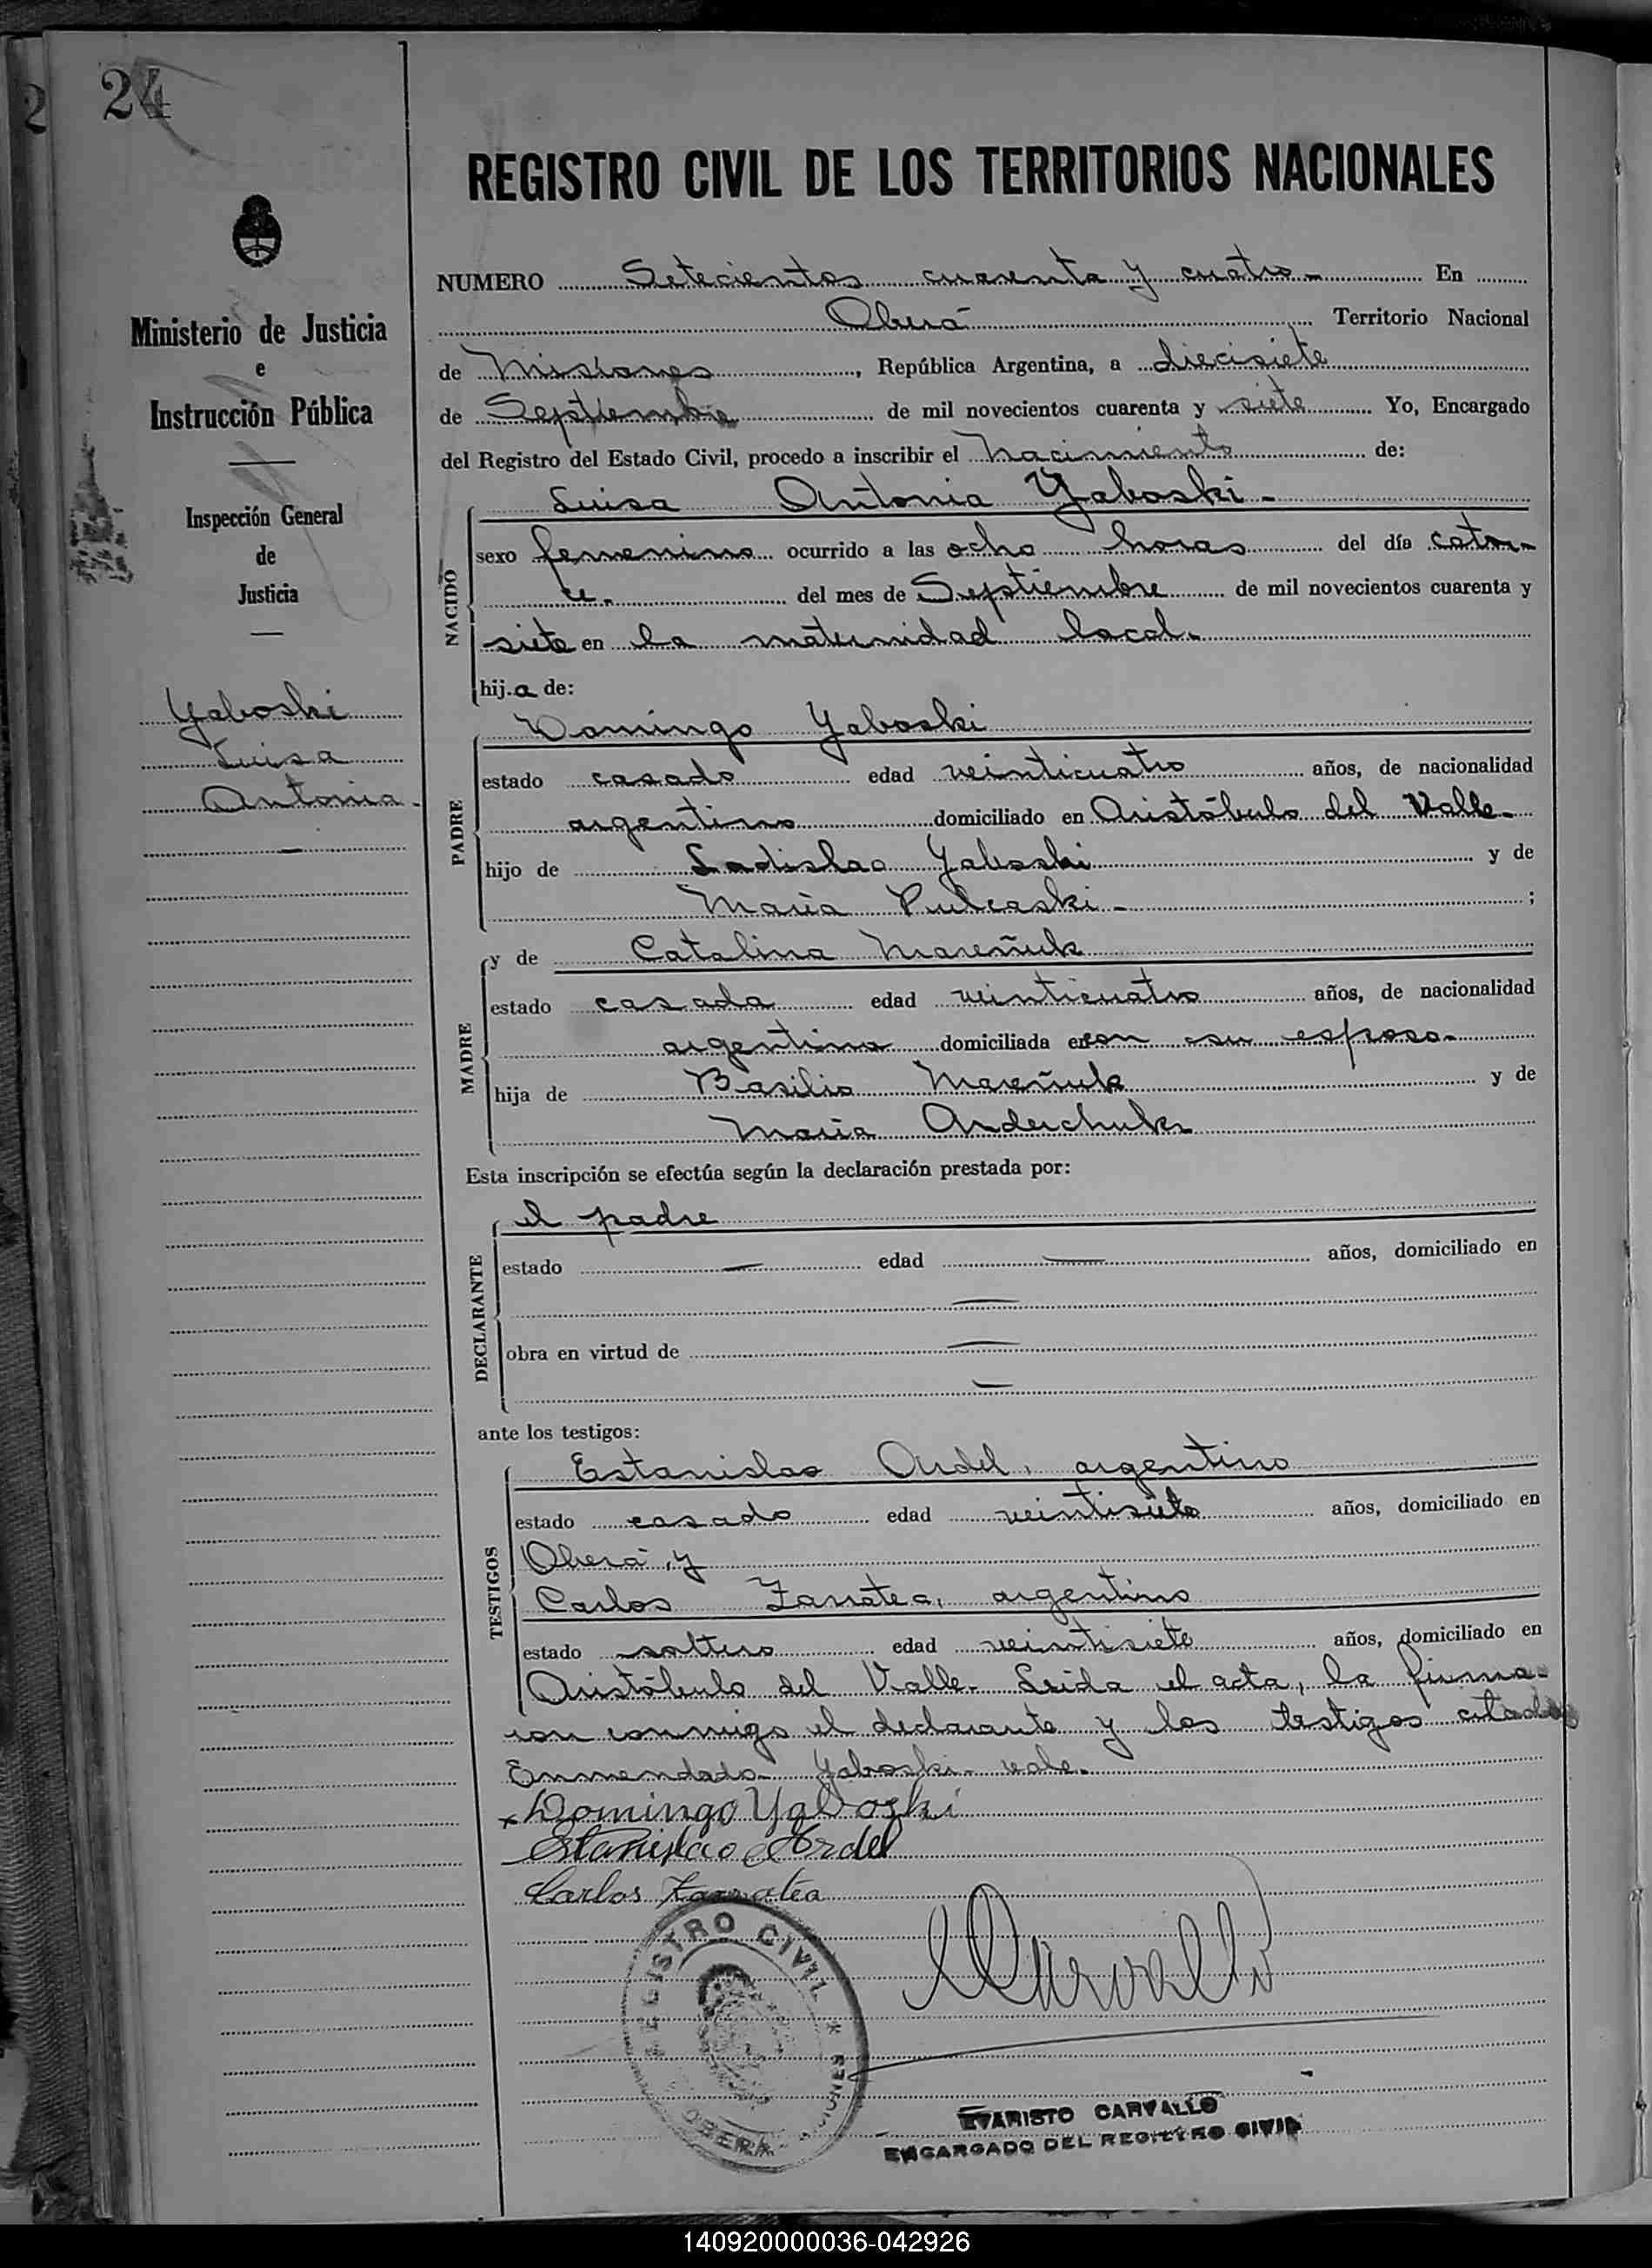 24
REGISTRO CIVIL DE LOS TERRITORIOS NACIONALES
Ministerio de Justicia
e
Instrucción Pública
Inspección General
de
Justicia
Yaboski
Luisa
Antonia
NUMERO Setecientos cuarenta y cuatro - En
Oberá Territorio Nacional
de Misiones, República Argentina, a diecisiete
de Septiembre de mil novecientos cuarenta y siete Yo, Encargado
del Registro del Estado Civil, procedo a inscribir el nacimiento de:
NACIDO
Luisa Antonia Yaboski -
sexo femenino ocurrido a las ocho horas del día cator-
ce. del mes de Septiembre de mil novecientos cuarenta y
siete en la maternidad local.
hija de:
PADRE
Domingo Yaboski
estado casado edad veinticuatro años, de nacionalidad
argentino domiciliado en Aristóbulo del Valle.
hijo de Ladislao Yaboski y de
María -;
MADRE
y de Catalina Mareñuk
estado casada edad veinticuatro años, de nacionalidad
argentina domiciliada con su esposo.
hija de Basilio Mareñuk y de
María Anderchuk
Esta inscripción se efectúa según la declaración prestada por:
DECLARANTE
el padre
estado — edad — años, domiciliado en
—
obra en virtud de —
—
ante los testigos:
TESTIGOS
Estanislao Ardel, argentino
estado casado edad veintisiete años, domiciliado en
Oberá, y
Carlos Zarratea, argentino
estado soltero edad veintisiete años, domiciliado en
Aristóbulo del Valle. Leída el acta, la firma-
ron conmigo el declarante y los testigos citados
Enmendado - Yaboski - vale.
Domingo Yaboski
Estanislao Ardel
Carlos Zarratea
REGISTRO CIVIL
OBERA - MISIONES
Carvallo
EVARISTO CARVALLO
ENCARGADO DEL REGISTRO CIVIL
140920000036-042926